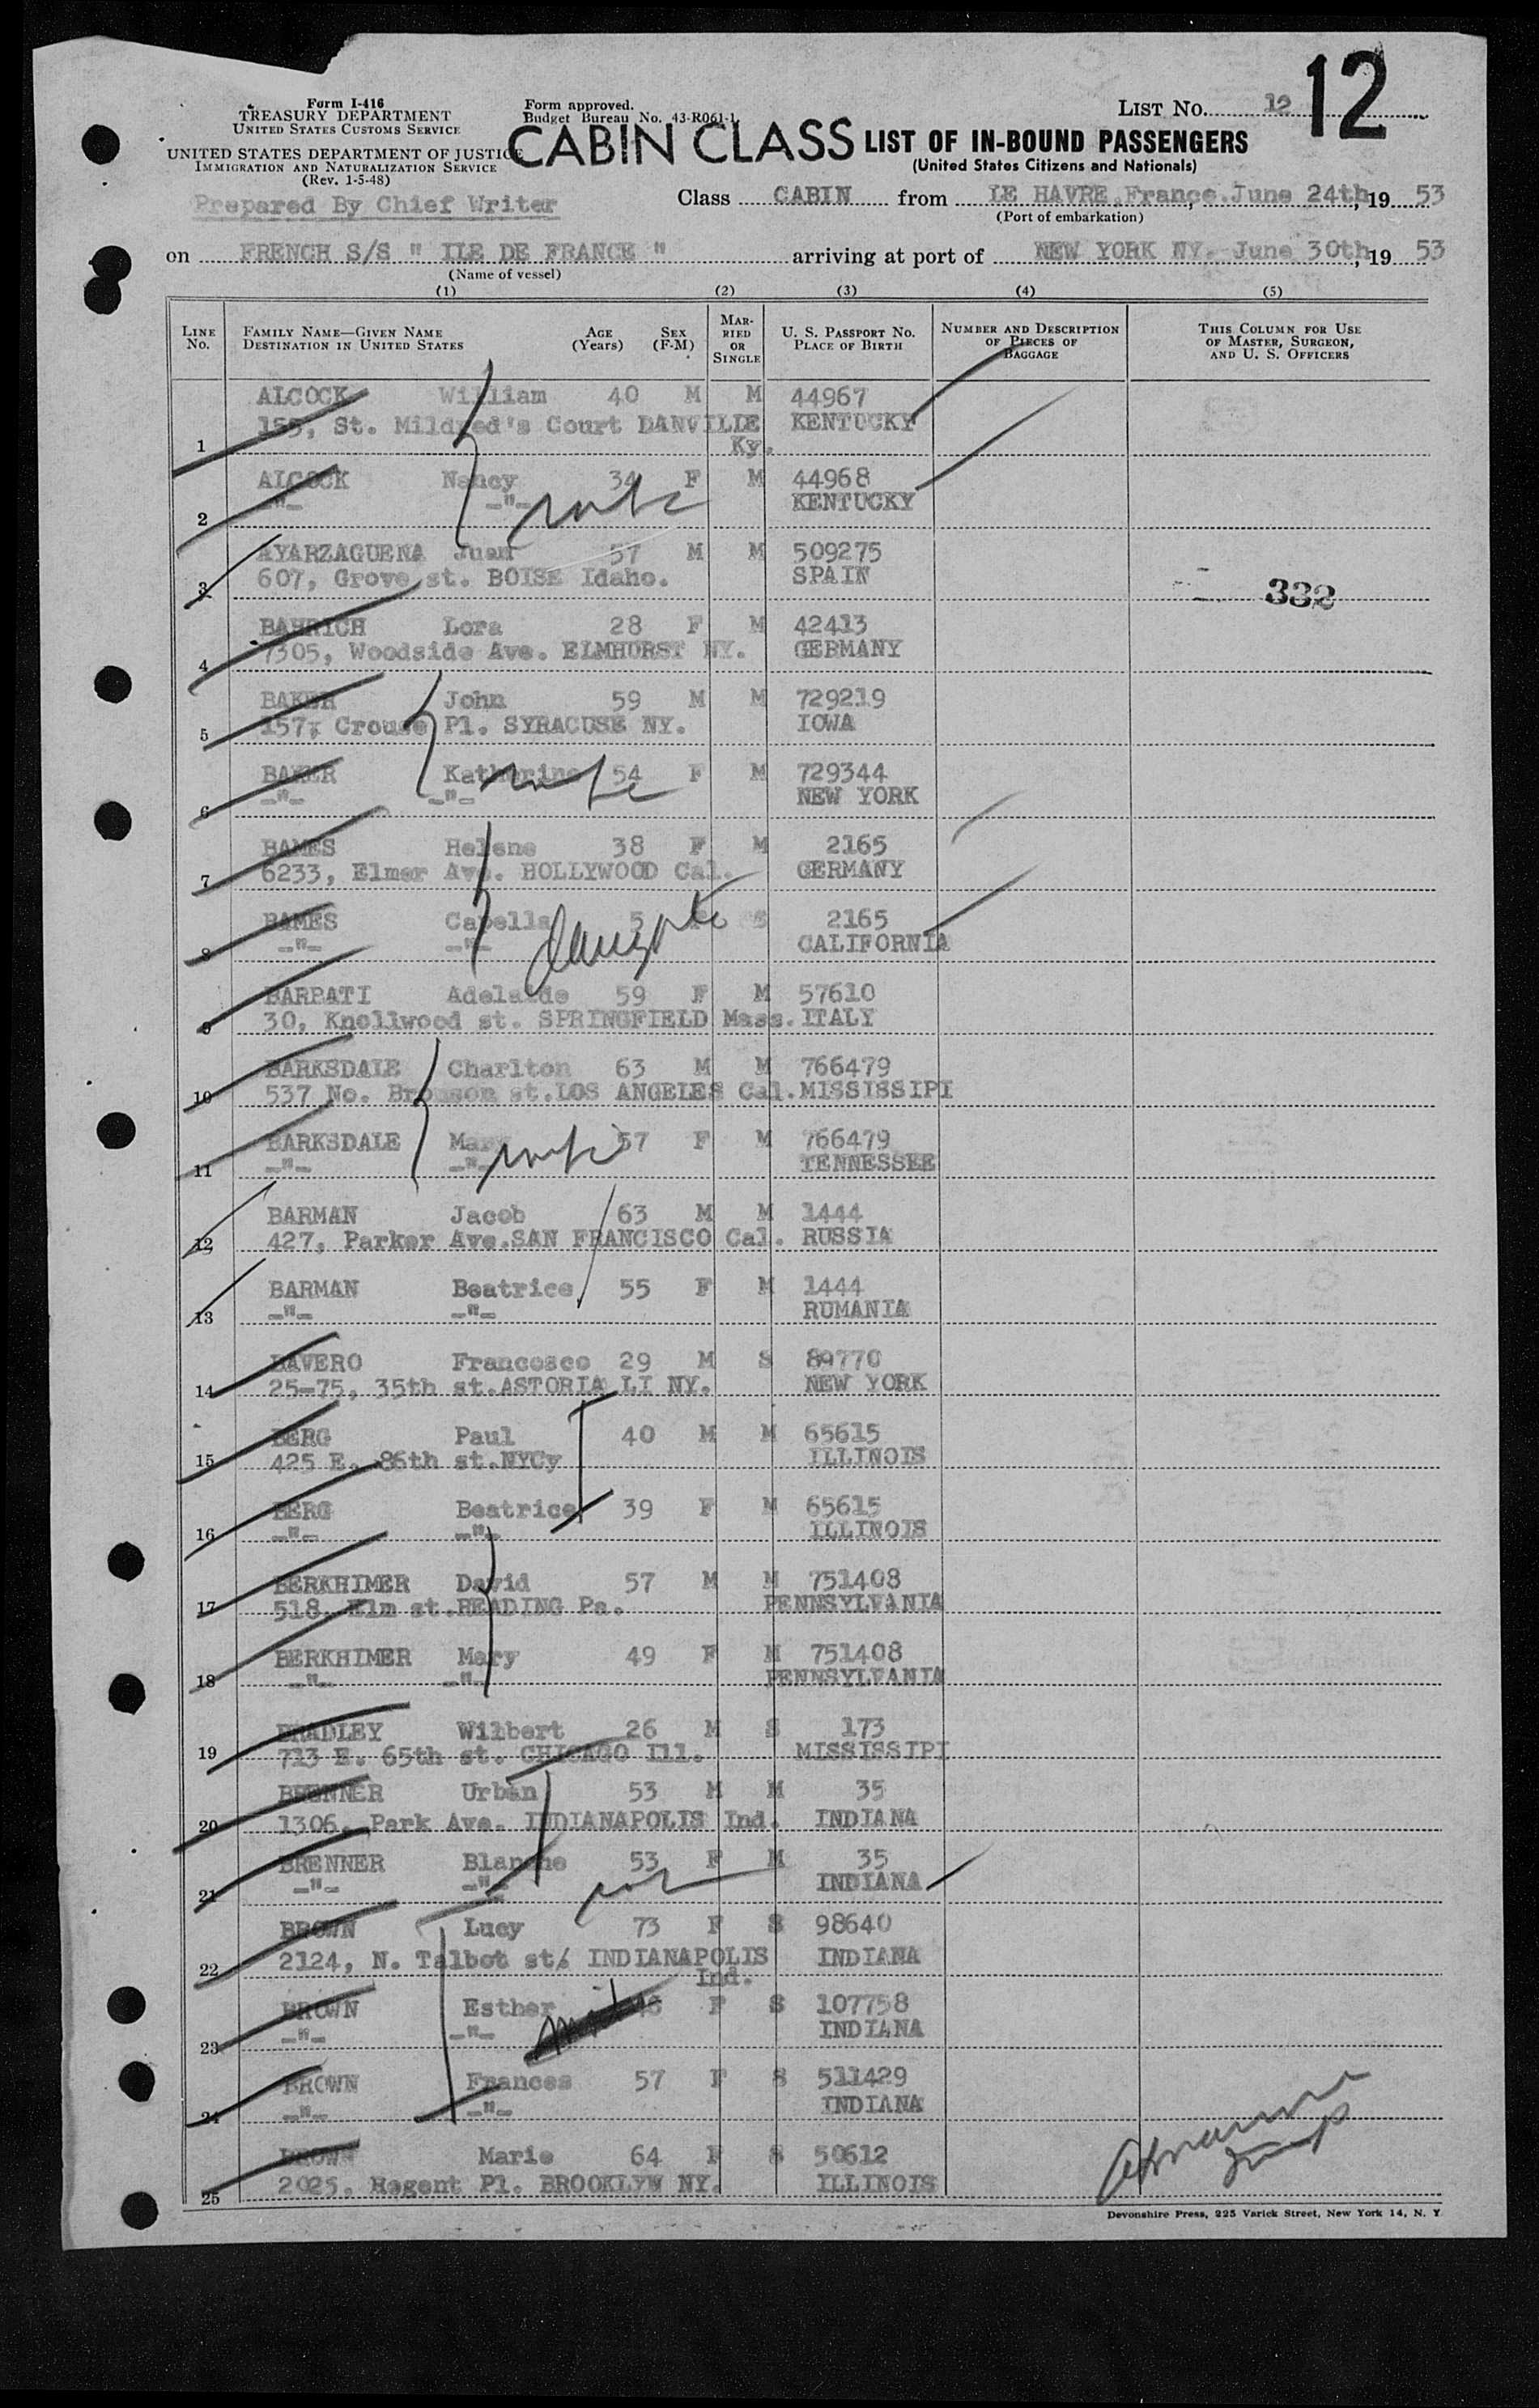 12
Form I-416
TREASURY DEPARTMENT
UNITED STATES CUSTOMS SERVICE
UNITED STATES DEPARTMENT OF JUSTICE
IMMIGRATION AND NATURALIZATION SERVICE
(Rev. 1-5-48)
Prepared By Chief Writer
Form approved.
Budget Bureau No. 43-R061-1.
LIST No. 12
CABIN CLASS LIST OF IN-BOUND PASSENGERS
(United States Citizens and Nationals)
Class CABIN from LE HAVRE, France, June 24th, 19 53
(Port of embarkation)
on FRENCH S/S " ILE DE FRANCE " arriving at port of NEW YORK NY. June 30th, 19 53
(Name of vessel)
(1) (2) (3) (4) (5)
LINE No. FAMILY NAME—GIVEN NAME DESTINATION IN UNITED STATES AGE (Years) SEX (F-M) MARRIED OR SINGLE U. S. PASSPORT NO. PLACE OF BIRTH NUMBER AND DESCRIPTION OF PIECES OF BAGGAGE THIS COLUMN FOR USE OF MASTER, SURGEON, AND U. S. OFFICERS
ALCOCK William 40 M M 44967
1 155, St. Mildred's Court DANVILLE Ky. KENTUCKY
ALCOCK Nancy 34 F M 44968
2 -"- -"- KENTUCKY
AYARZAGUENA Juan 57 M M 509275
3 607, Grove st. BOISE Idaho. SPAIN
332
BAHRICH Lora 28 F M 42413
4 7305, Woodside Ave. ELMHURST NY. GERMANY
BAKER John 59 M M 729219
5 157, Crouse Pl. SYRACUSE NY. IOWA
BAKER Katherine 54 F M 729344
6 -"- -"- NEW YORK
BAMES Helene 38 F M 2165
7 6233, Elmer Ave. HOLLYWOOD Cal. GERMANY
BAMES Capella 5 F S 2165
8 -"- -"- CALIFORNIA
BARBATI Adelaide 59 F M 57610
9 30, Knollwood st. SPRINGFIELD Mass. ITALY
BARKSDALE Charlton 63 M M 766479
10 537 No. Bronson st. LOS ANGELES Cal. MISSISSIPI
BARKSDALE Mary 57 F M 766479
11 -"- -"- TENNESSEE
BARMAN Jacob 63 M M 1444
12 427, Parker Ave. SAN FRANCISCO Cal. RUSSIA
BARMAN Beatrice 55 F M 1444
13 -"- -"- RUMANIA
BAVERO Francosco 29 M S 89770
14 25-75, 35th st. ASTORIA LI NY. NEW YORK
BERG Paul 40 M M 65615
15 425 E. 86th st. NYCy ILLINOIS
BERG Beatrice 39 F M 65615
16 -"- -"- ILLINOIS
BERKHIMER David 57 M M 751408
17 518, Elm st. READING Pa. PENNSYLVANIA
BERKHIMER Mary 49 F M 751408
18 -"- -"- PENNSYLVANIA
BRADLEY Wilbert 26 M S 173
19 713 E. 65th st. CHICAGO Ill. MISSISSIPI
BRENNER Urban 53 M M 35
20 1306, Park Ave. INDIANAPOLIS Ind. INDIANA
BRENNER Blanche 53 F M 35
21 -"- -"- INDIANA
BROWN Lucy 73 F S 98640
22 2124, N. Talbot st. INDIANAPOLIS Ind. INDIANA
BROWN Esther F S 107758
23 -"- -"- INDIANA
BROWN Frances 57 F S 511429
24 -"- -"- INDIANA
BROWN Marie 64 F S 50612
25 2025, Regent Pl. BROOKLYN NY. ILLINOIS
Devonshire Press, 225 Varick Street, New York 14, N. Y.